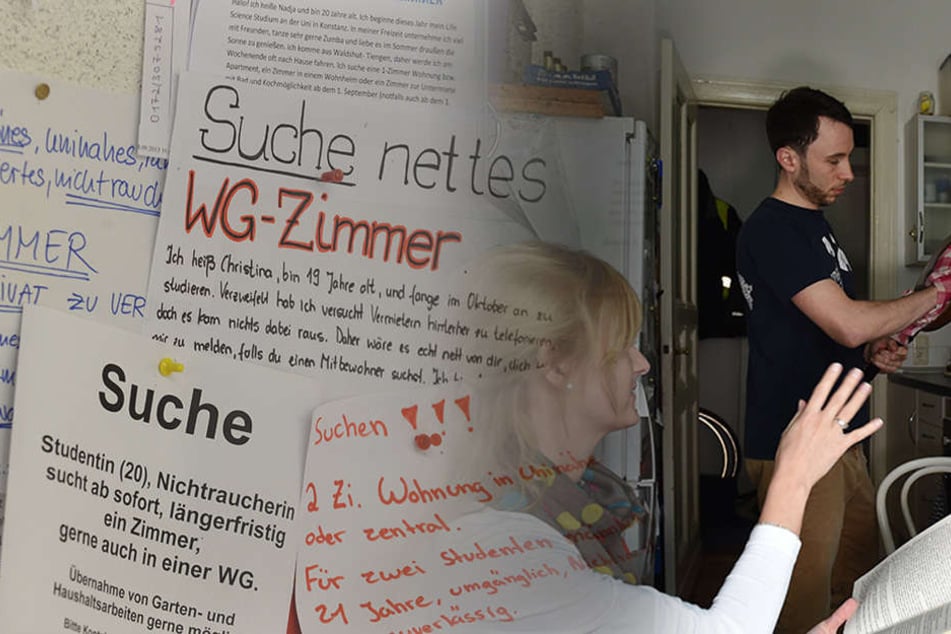 Hallo! Ich heiße Nadja und bin 20 Jahre alt. Ich beginne dieses Jahr mein Life
Science Studium an der Uni in Konstanz. In meiner Freizeit unternehme ich viel
mit Freunden, tanze sehr gerne Zumba und liebe es im Sommer draußen die
Sonne zu genießen. Ich komme aus Waldshut- Tiengen, daher werde ich am
Wochenende oft nach Hause fahren. Ich suche eine 1-Zimmer Wohnung bzw.
Apartment, ein Zimmer in einem Wohnheim oder ein Zimmer zur Untermiete
mit Bad und Kochmöglichkeit ab dem 1. September (notfalls auch ab dem 1.
uninahes,
nichtrauch
MMER
PRIVAT ZU VER
Suche nettes
WG-Zimmer
Ich heiß Christina, bin 19 Jahre alt, und fange im Oktober an zu
studieren. Verzweifelt hab ich versucht Vermietern hinterher zu telefonieren,
doch es kam nichts dabei raus. Daher wäre es echt nett von dir, dich
mir zu melden, falls du einen Mitbewohner suchst. Ich
Suche
Studentin (20), Nichtraucherin
sucht ab sofort, längerfristig
ein Zimmer,
gerne auch in einer WG.
Übernahme von Garten- und
Haushaltsarbeiten gerne mögli
Bitte
Suchen !!!
2 Zi. Wohnung in Uninähe
oder zentral.
Für zwei Studenten
21 Jahre, umgänglich,